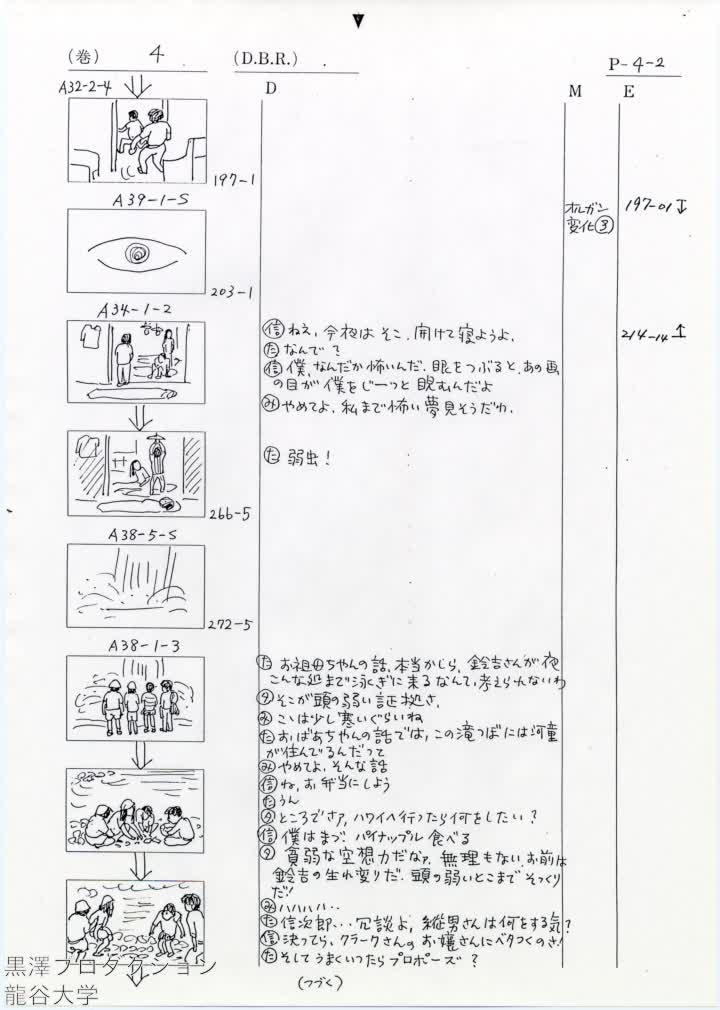 (巻) 4
(D.B.R.) .
P-4-2
D
M
E
A32-2-4
197-1
A39-1-S
オルガン
変化③
197-01
203-1
A34-1-2
214-14
㋐信 ねえ、今夜は そこ、開けて寝ようよ、
た なんで?
信 僕、なんだか怖いんだ、眼をつぶると、あの画
の目が僕をじーっと睨むんだよ
み やめてよ、私まで怖い夢見そうだわ、
た 弱虫!
266-5
A38-5-S
272-5
A38-1-3
た お祖母ちゃんの話、本当かしら、鈴吉さんが夜
こんな処まで泳ぎに来るなんて、考えられないわ
タ そこが頭の弱い証拠さ、
み こゝは少し寒いぐらいね
た おばあちゃんの話では、この滝つぼには河童
が住んでるんだって
み やめてよ、そんな話
信 ね、お弁当にしよう
た うん
タ ところでさァ、ハワイへ行ったら何をしたい?
信 僕はまづ パイナップル 食べる
タ 貧弱な空想力だなァ、無理もない、お前は
鈴吉の生れ変りだ、頭の弱いとこまでそっくり
だ!
み ハハハハ・・
た 信次郎・・・冗談よ、縦男さんは何をする気?
信 決ってら、クラークさんのお嬢さんにベタつくのさ!
た そしてうまくいったらプロポーズ?
(つづく)
黒澤プロダクション
龍谷大学